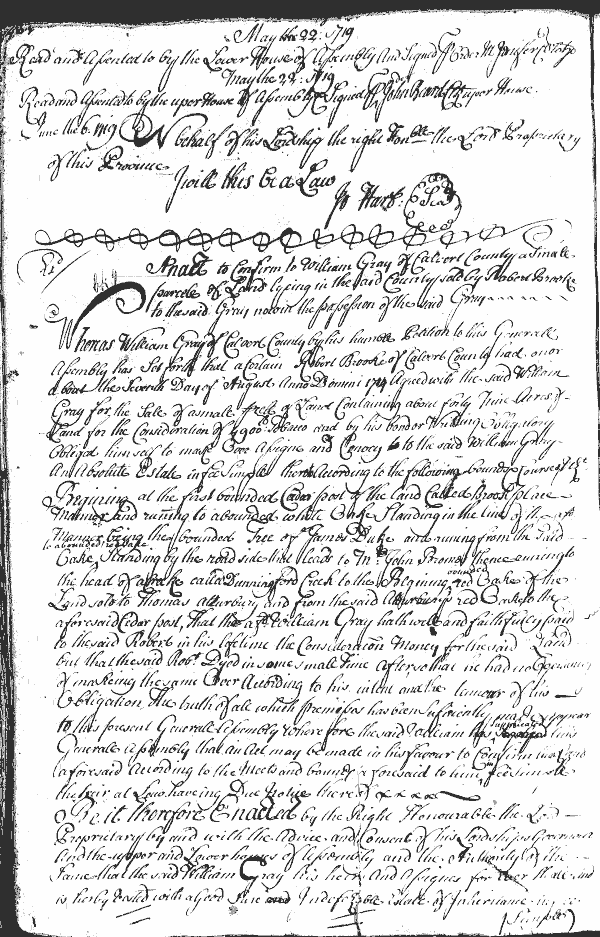 May the 22: 1719
Read and Assented to by the Lower House of Assembly And Signed
May the 22: 1719
Read and Assented to by the uper House of Assembly Signed John Beard Clk uper House.
June the 6. 1719 On behalf of his Lordship the right Honble the Lord Proprietary
of this Province
I will this be a Law
Jo Hart: Seal
An Act to Confirm to William Gray of Calvert County a Small
parcele of Land lyeing in the said County sold by Robert Brooke
to the said Gray now in the possession of the said Gray
Whereas William Gray of Calvert County by his humble Petition to this Generall
Assembly has Set forth that a Certain Robert Brooke of Calvert County had on or
about the Day of August Anno Domini Agreed with the said William
Gray for the Sale of a small of Land Containing about forty Nine Acres of
Land for the Consideration of Tobacco and by his bond or Writting Obligatory
Obliged himself to make Over Assigne and Convey to the said William Gray
An Absolute Estate in fee Simple thereof According to the following bounds
Begining at the first bounded Cedar post of the Land Called Brooke place
Mannor and runing to a bounded white Oake Standing in the line of the
Mannor being the bounded Tree of James Duke and runing from the said
Oake Standing by the road side that leads to Mr. John Broomes thence runing to
the head of a Creek to the Begining red Oake of the
Land sold to Thomas Atterbury and from the said Atterburys red Oake to the
aforesaid Cedar post, That the William Gray hath well and faithfully paid
to the said Robert in his lifetime the Consideration Money for the said Land
but that the said Robt. Dyed in some small time After so that he had no Oppertunity
of makeing the same Over According to his intent and the tenour of his
Obligation The truth of all which premises has been sufficiently made appear
to this present Generall Assembly Wherefore the said William has supplicated this
Generall Assembly that an Act may be made in his favour to Confirm the Land
aforesaid According to the Meets and bounds aforesaid to him in feesimple
the heir at Law having Due Notice thereof
Be it therefore Enacted by the Right Honourable the Lord
Proprietary by and with the Advice and Consent of his Lordships Governor
And the upper and Lower houses of Assembly and the Authority of the
Same that the said William Gray his heirs And Assignes for Ever shall and
is hereby vested with a Good Sure and Indefezable Estate of Inheritance in fee
Simple